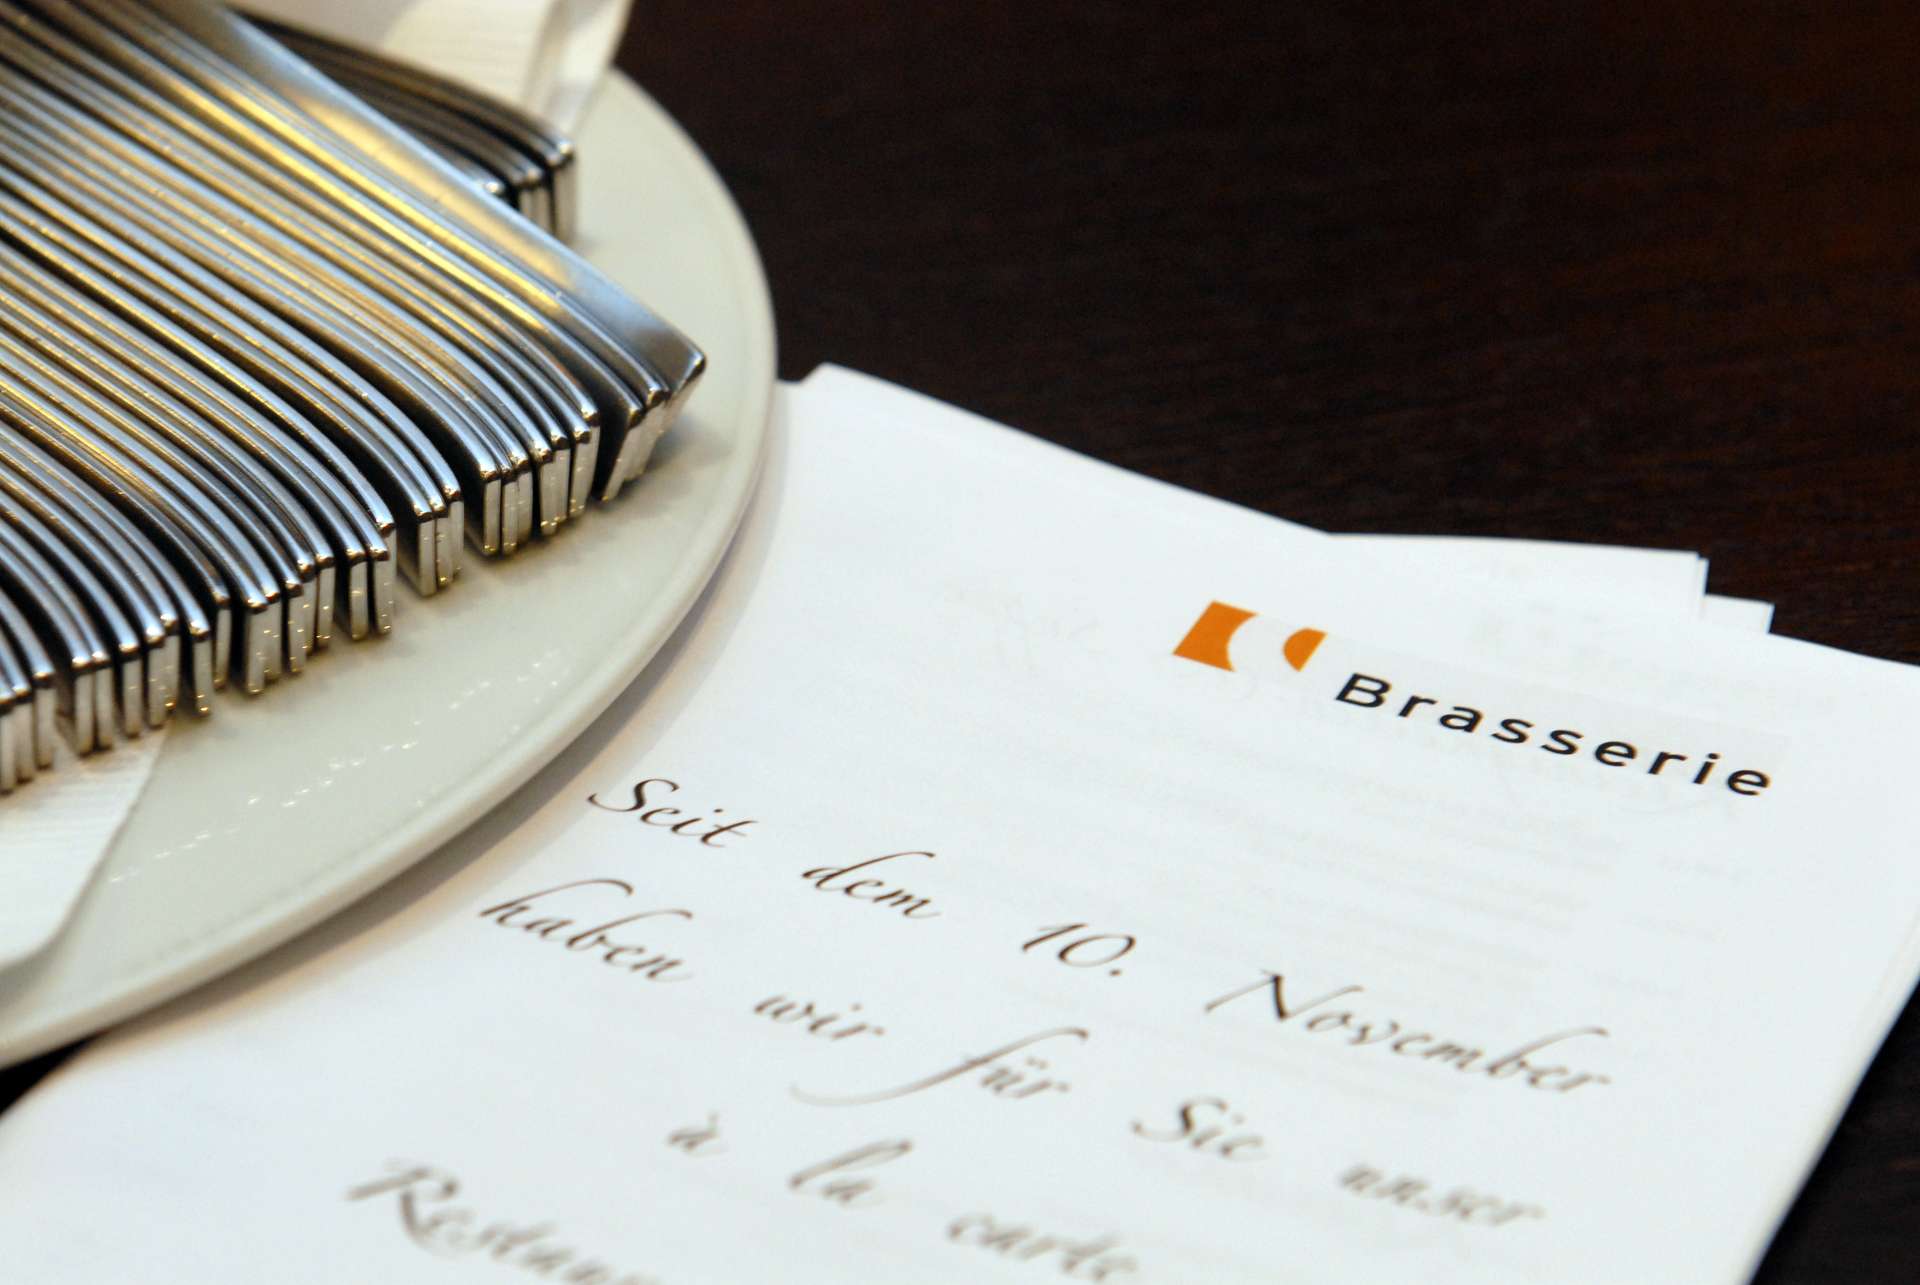 Brasserie
Seit dem 10. November
haben wir für Sie unser
à la carte